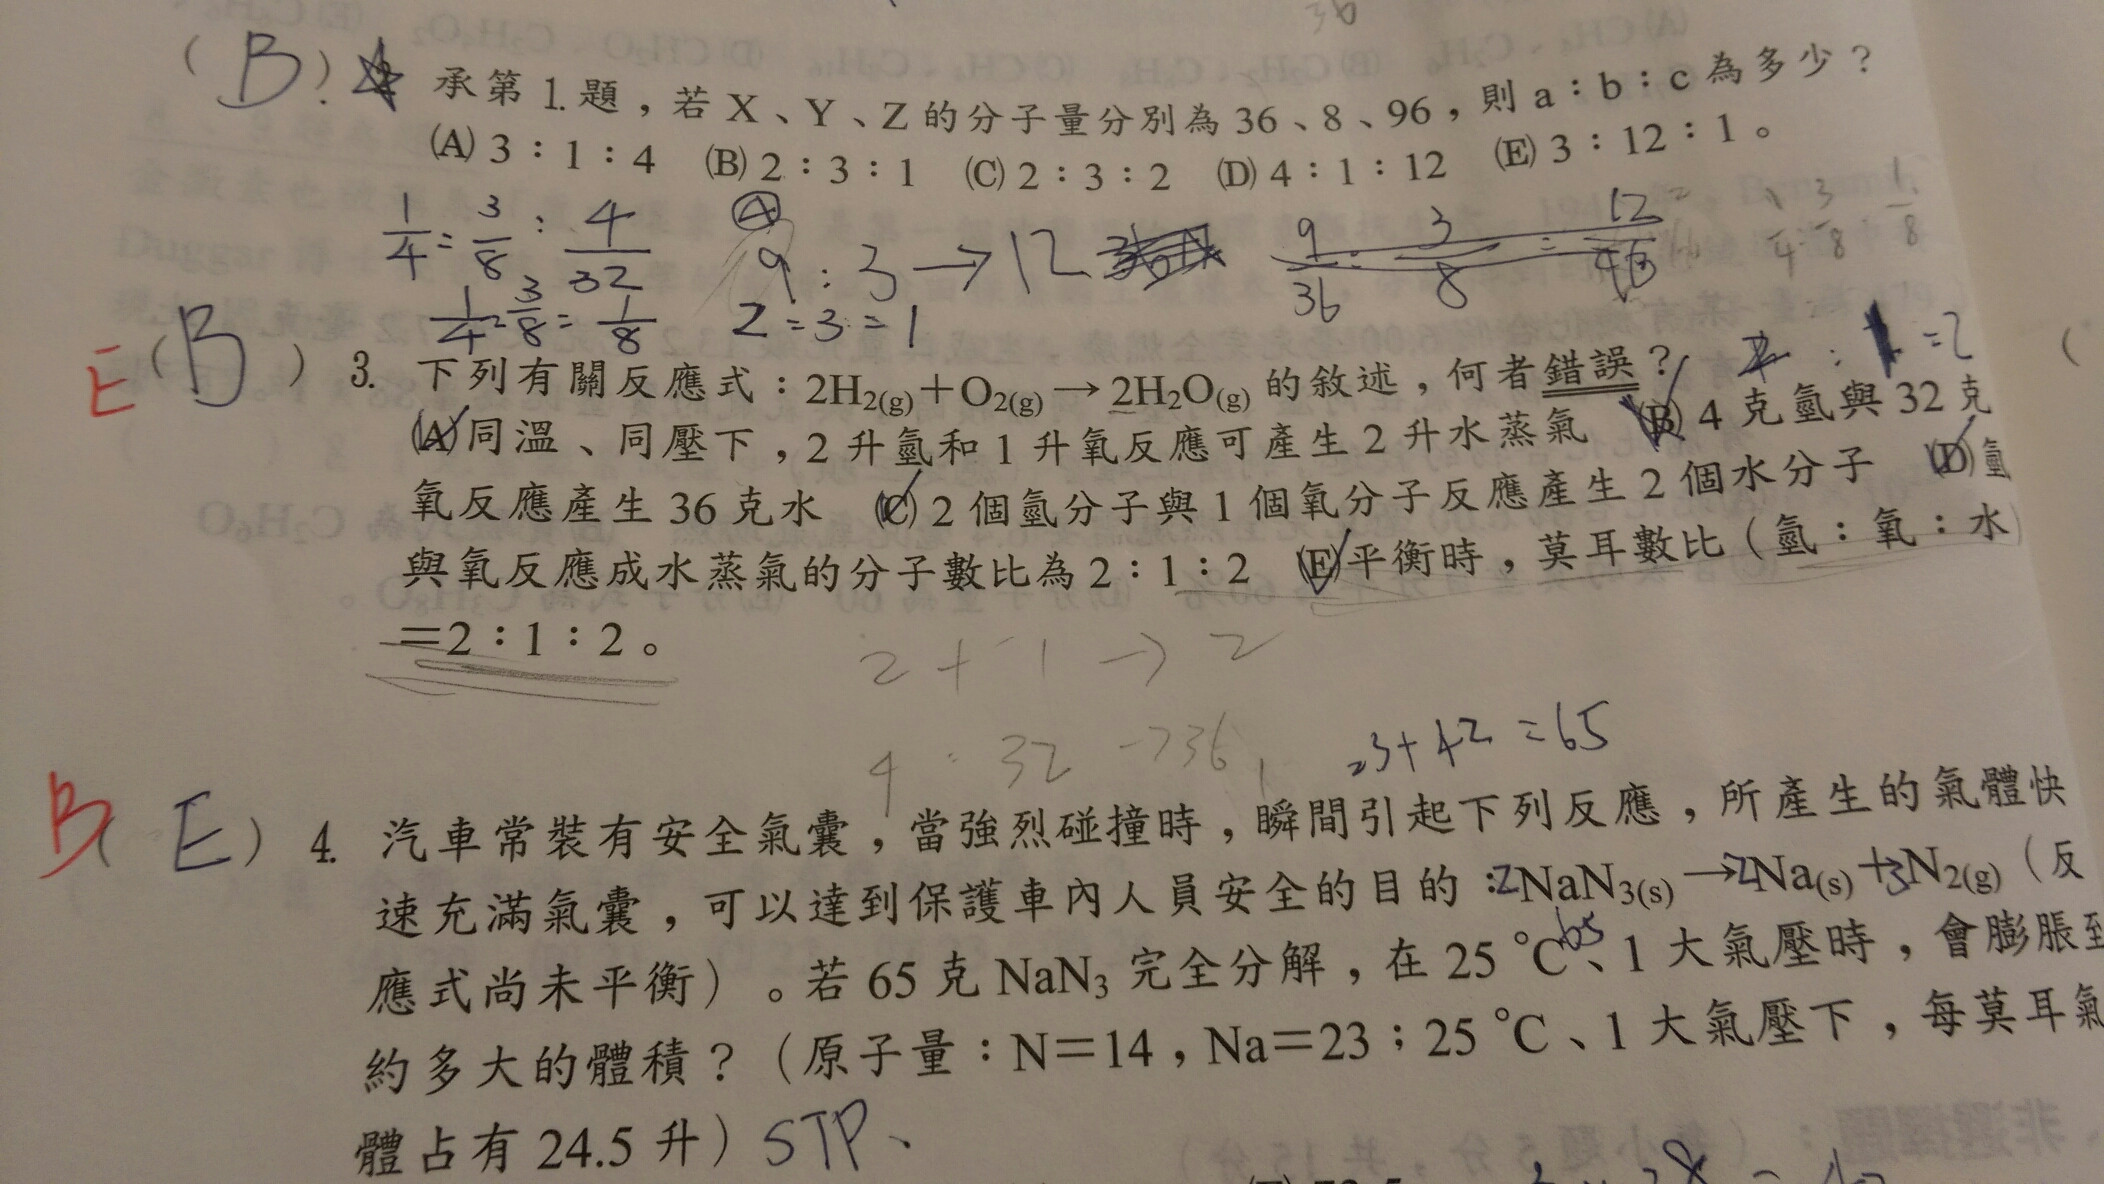 (B)
承第1.題，若X、Y、Z的分子量分別為36、8、96，則a：b：c為多少？
(A) 3：1：4 (B) 2：3：1 (C) 2：3：2 (D) 4：1：12 (E) 3：12：1。
1/4 = 3/8 : 4/32
(A)
9 : 3 → 12
9/36 : 3/8 = 12
1/4 = 3/8 = 1/8
2 = 3 = 1
E (B) 3. 下列有關反應式：2H2(g)＋O2(g)→2H2O(g)的敘述，何者錯誤？
(A)同溫、同壓下，2升氫和1升氧反應可產生2升水蒸氣 (B) 4克氫與32克
氧反應產生36克水 (C) 2個氫分子與1個氧分子反應產生2個水分子 (D)氫
與氧反應成水蒸氣的分子數比為2：1：2 (E)平衡時，莫耳數比（氫：氧：水）
＝2：1：2。
2 + 1 → 2
4 : 32 → 36
23+42=65
B (E) 4. 汽車常裝有安全氣囊，當強烈碰撞時，瞬間引起下列反應，所產生的氣體快
速充滿氣囊，可以達到保護車內人員安全的目的：2NaN3(s)→2Na(s)＋3N2(g)（反
65
應式尚未平衡）。若65克NaN3完全分解，在25 ℃、1大氣壓時，會膨脹到
約多大的體積？（原子量：N＝14，Na＝23；25 ℃、1大氣壓下，每莫耳氣
體占有24.5升）STP、